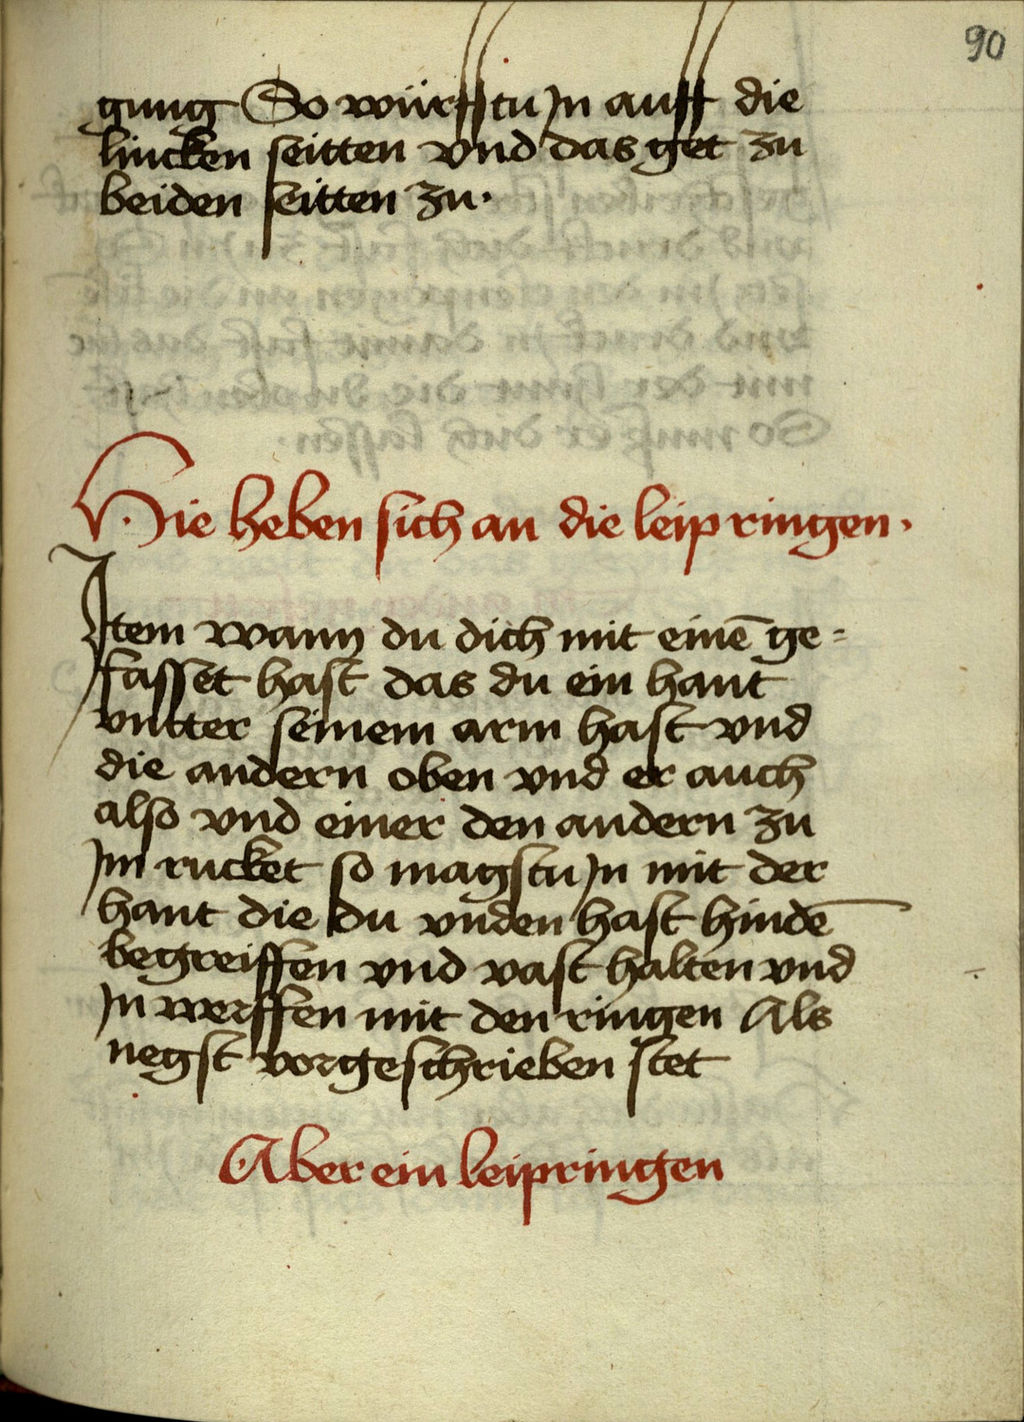 90
gung So würfftu Jn auff die
lincken seitten vnd das get zu
beiden seitten zu.
Hie heben sich an die leip ringen.
Jtem wann du dich mit einē ge=
fasset hast das du ein hant
vntter seinem arm hast vnd
die andern oben vnd er auch
also vnd einer den andern zu
Jm rucket so magstu Jn mit der
hant die du vnden hast hindē
begreiffen vnd vast halten vnd
Jn werffen mit den ringen Als
negst vorgeschrieben stet
Aber ein leipringen